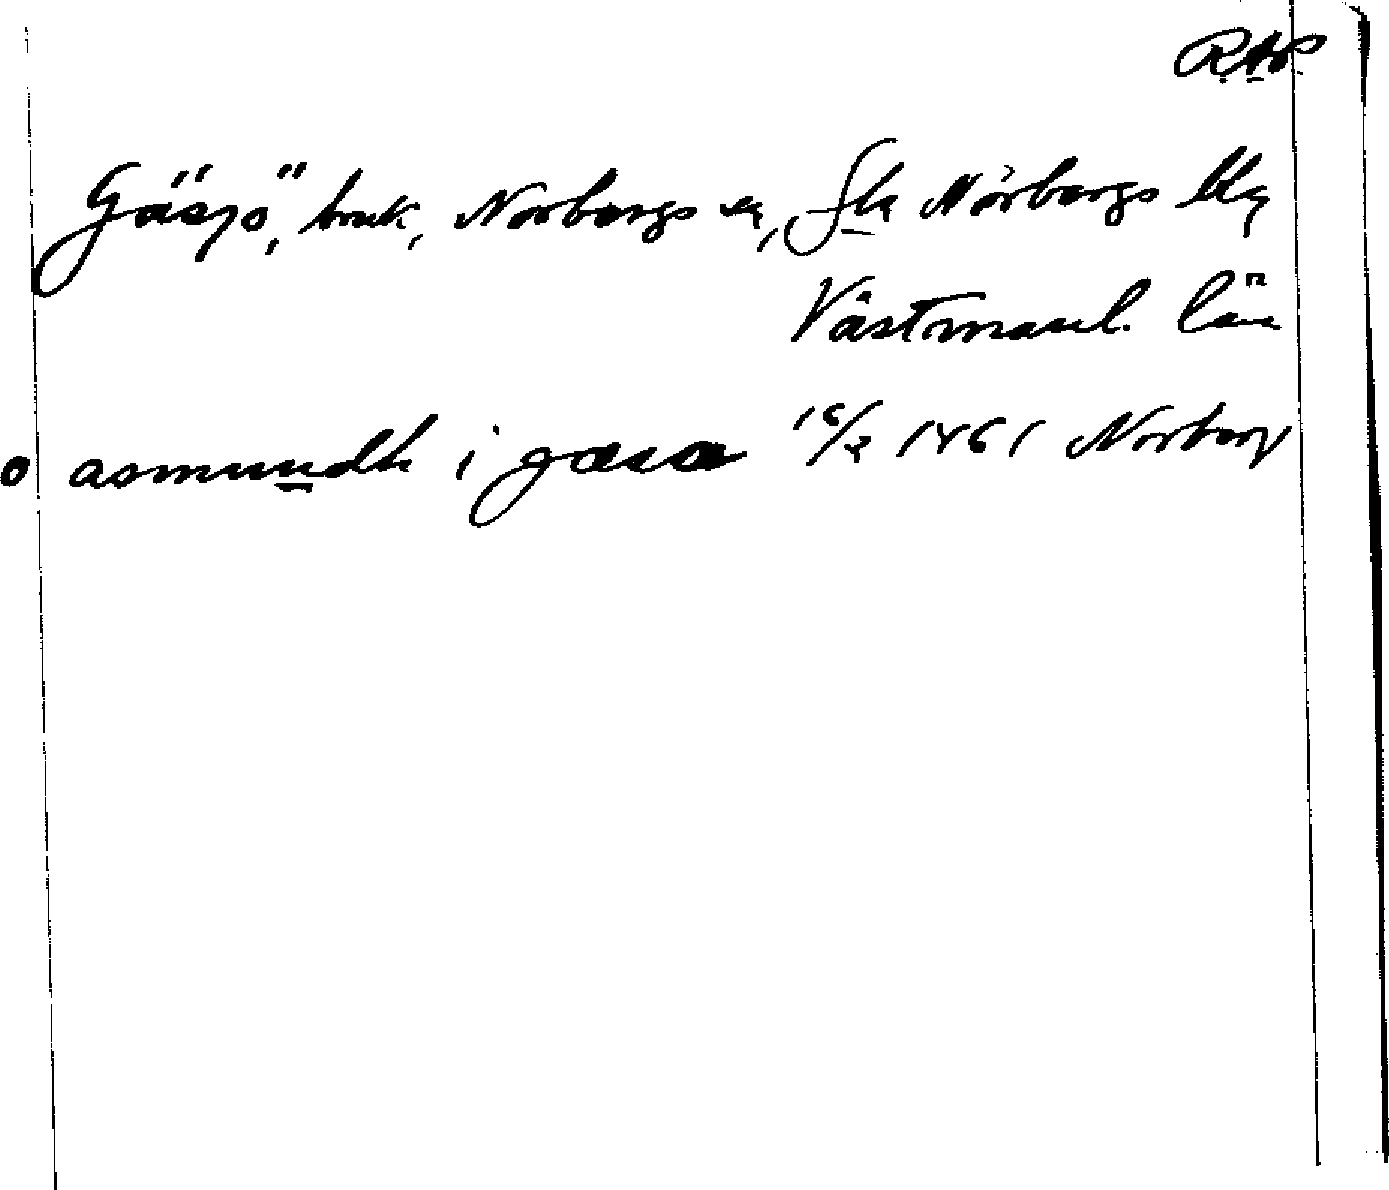 RAP
Gäsjö, bruk, Norbergs sn, Gla Norbergs blg
Västmanl. län
asmundh i gæsa 16/2 1461 Norberg